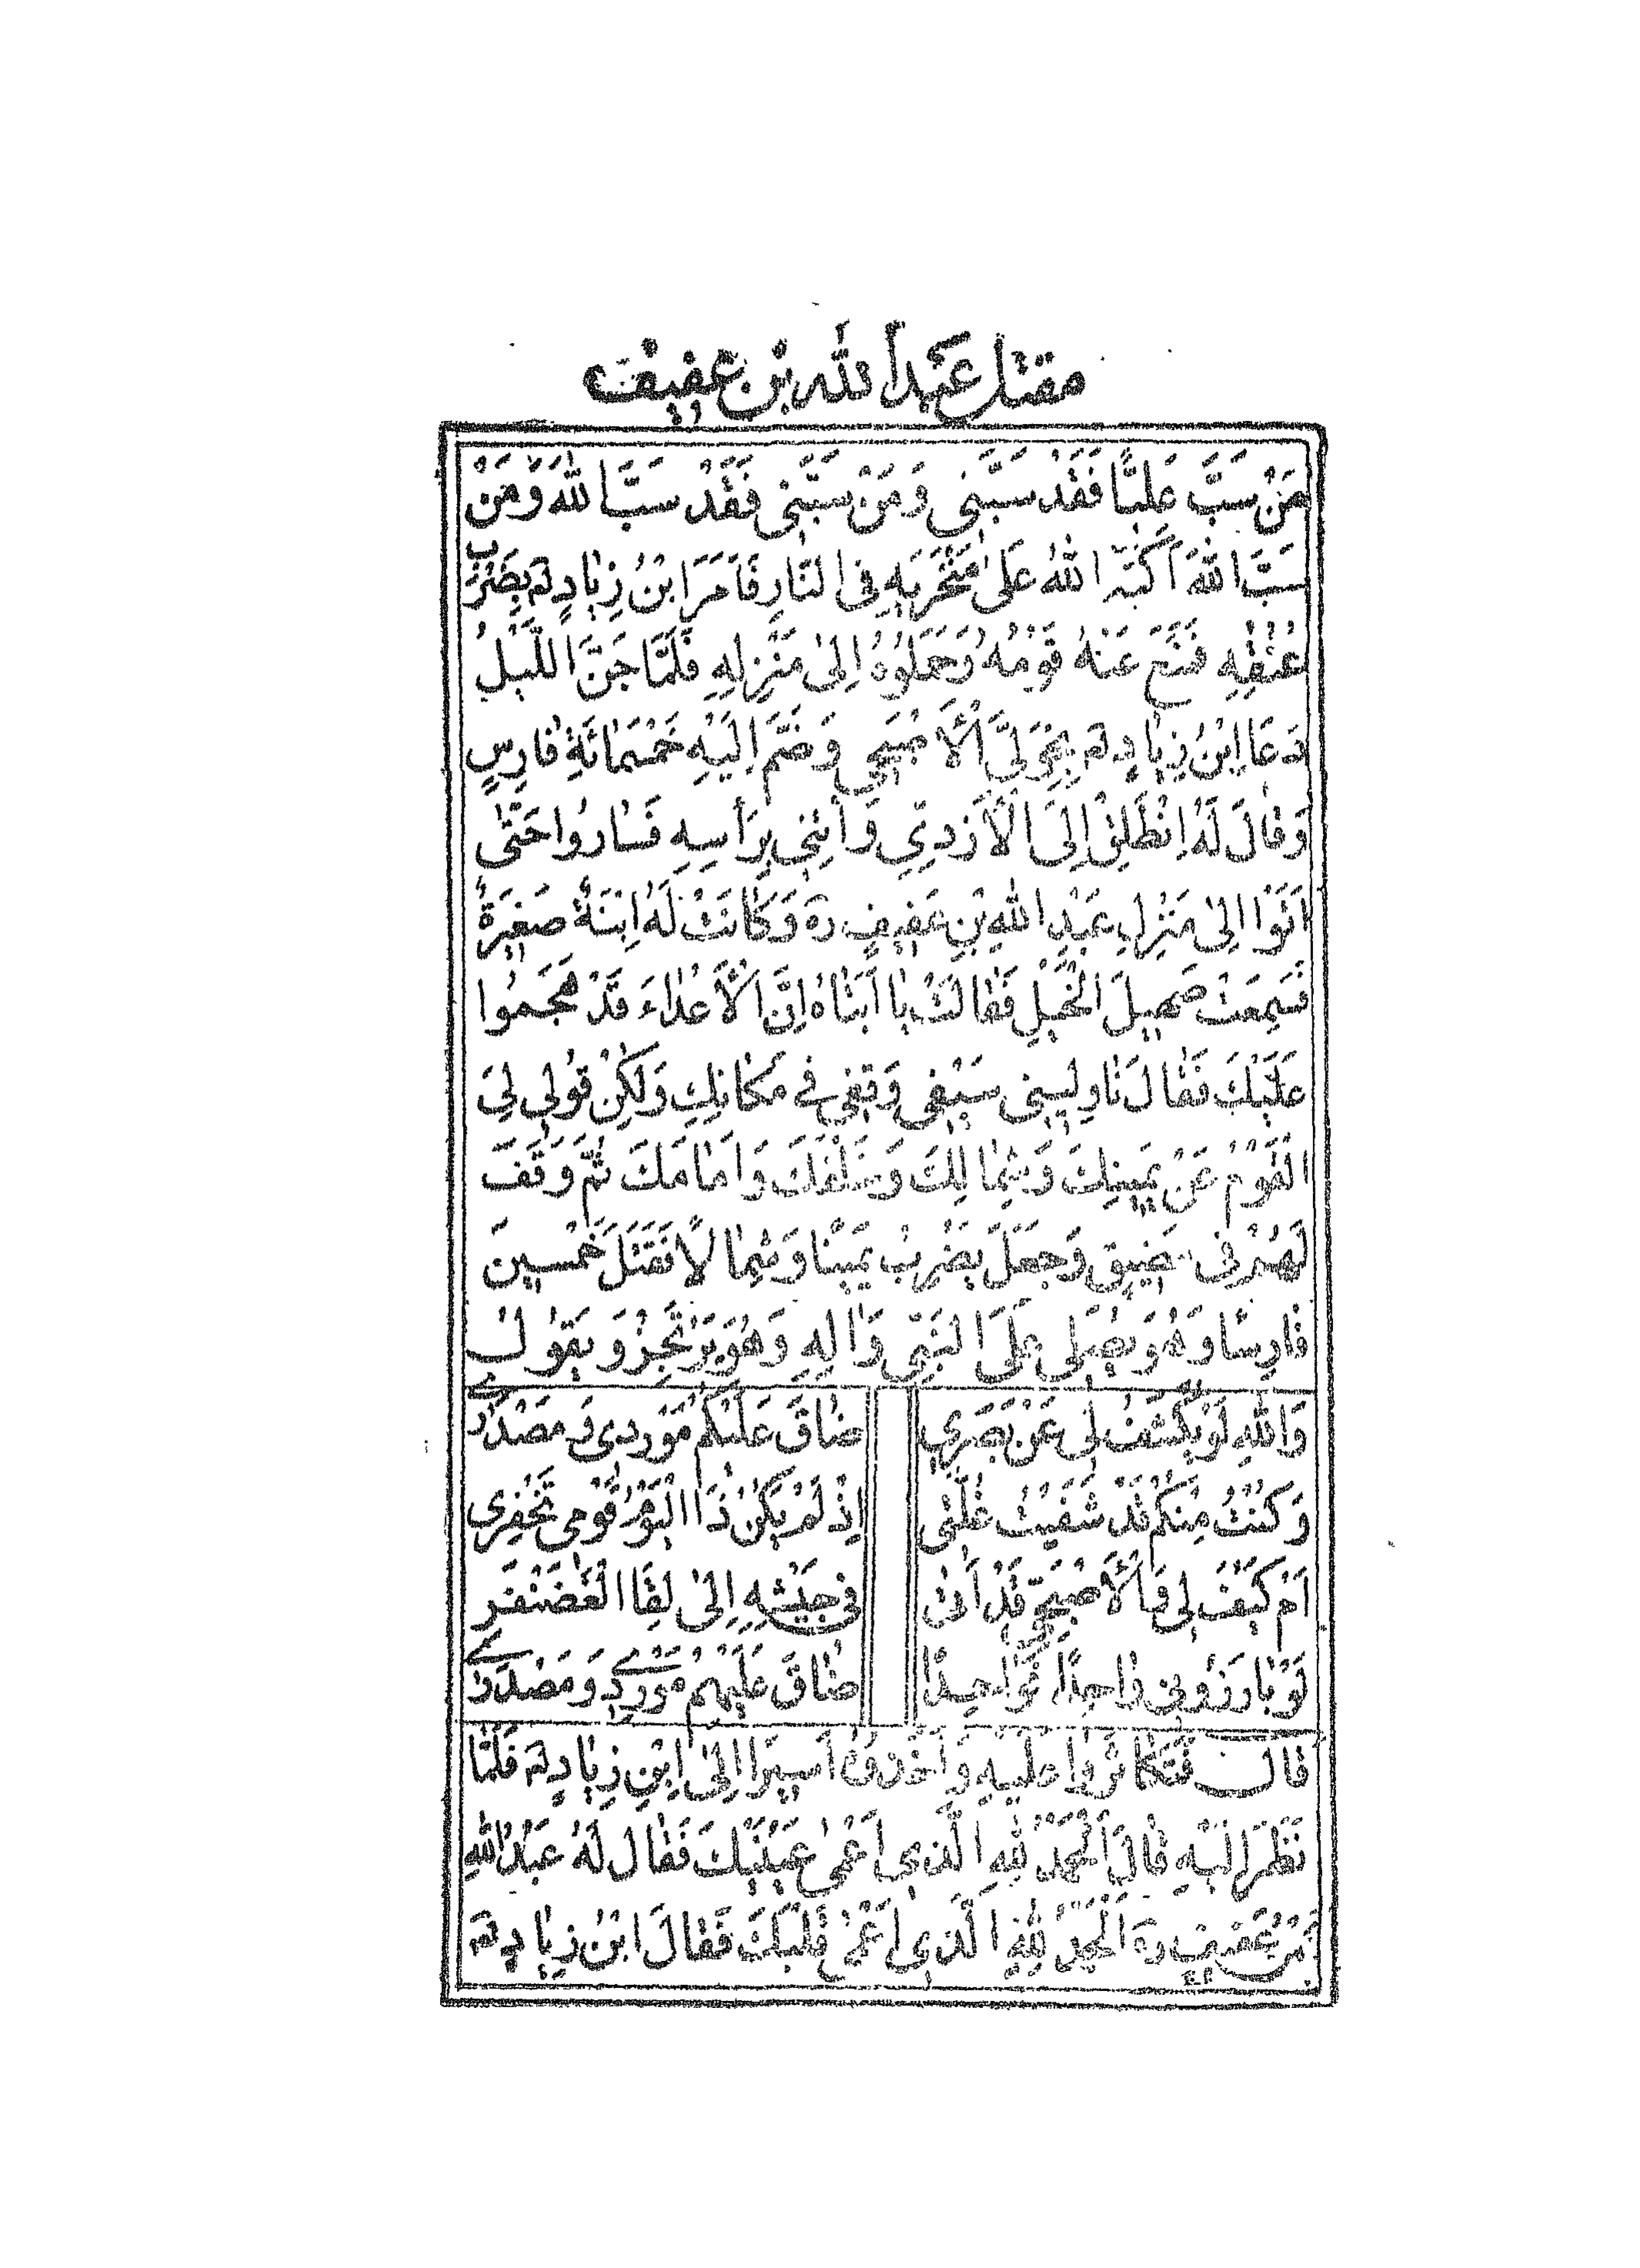 مقتل عبد الله بن عفيف
مَنْ سَبَّ عَلِيًّا فَقَدْ سَبَّنِي وَمَنْ سَبَّنِي فَقَدْ سَبَّ اللهَ وَمَنْ
سَبَّ اللهَ اَكَبَّهُ اللهُ عَلىٰ مَنْخَرَيْهِ فِي النَّارِ فَاَمَرَ ابْنُ زِيٰادٍ لة بِضَرْبِ
عُنُقِهِ فَمَنَعَ عَنْهُ قَوْمُهُ وَحَمَلُوهُ اِلىٰ مَنْزِلِهِ فَلَمَّا جَنَّ اللَّيْلُ
دَعَا اِبْنُ زِيٰادٍ لة بِخَوَلِيِّ الْأَصْبَحِيِّ وَضَمَّ اِلَيْهِ خَمْسَمٰائَةِ فٰارِسٍ
وَقٰالَ لَهُ اِنْطَلِقْ اِلَى الْأَزْدِيِّ وَأْتِنِي بِرَأْسِهِ فَسٰارُوا حَتّٰى
اَتَوْا اِلىٰ مَنْزِلِ عَبْدِ اللهِ بْنِ عَفِيفٍ ره وَكٰانَتْ لَهُ اِبْنَةٌ صَغِيرَةٌ
فَسَمِعَتْ صَهِيلَ الْخَيْلِ فَقٰالَتْ يٰا اَبَتٰاهُ اِنَّ الْأَعْدٰاءَ قَدْ هَجَمُوا
عَلَيْكَ فَقٰالَ نٰاوِلِينِي سَيْفِي وَقِفِي فِي مَكٰانِكِ وَلٰكِنْ قُولِي لِيَ
الْقَوْمُ عَنْ يَمِينِكَ وَشِمٰالِكَ وَخَلْفَكَ وَاَمٰامَكَ ثُمَّ وَقَفَ
لَهُمْ فِي مَضِيقٍ وَجَعَلَ يَضْرِبُ يَمِينًا وَشِمٰالًا فَقَتَلَ خَمْسِينَ
فٰارِسًا وَهُوَ يُصَلِّي عَلَى النَّبِيِّ وَاٰلِهِ وَهُوَ يَرْتَجِزُ وَيَقُولُ
وَاللهِ لَوْ يُكْشَفُ لِي عَنْ بَصَرِي ضٰاقَ عَلَيْكُمْ مَوْرِدِي وَمَصْدَرِي
وَكُنْتُ مِنْكُمْ قَدْ شَفَيْتُ غُلَّتِي اِذْ لَمْ يَكُنْ ذَا الْيَوْمَ قَوْمِي تَخْفُرِي
اَمْ كَيْفَ لِي وَالْأَصْبَحِيُّ قَدْ اَتىٰ فِي جَيْشِهِ اِلىٰ لِقَا الْغَضَنْفَرِ
لَوْ بٰارَزُونِي وٰاحِدًا فَوٰاحِدًا ضٰاقَ عَلَيْهِمْ مَوْرِدِي وَمَصْدَرِي
قٰالَ فَتَكٰاثَرُوا عَلَيْهِ وَاَخَذُوهُ اَسِيرًا اِلىٰ اِبْنِ زِيٰادٍ لة فَلَمّٰا
نَظَرَ اِلَيْهِ قٰالَ اَلْحَمْدُ لِلّٰهِ الَّذِي اَعْمىٰ عَيْنَيْكَ فَقٰالَ لَهُ عَبْدُ اللهِ
بْنُ عَفِيفٍ ره اَلْحَمْدُ لِلّٰهِ الَّذِي اَعْمىٰ قَلْبَكَ فَقٰالَ ابْنُ زِيٰادٍ لة